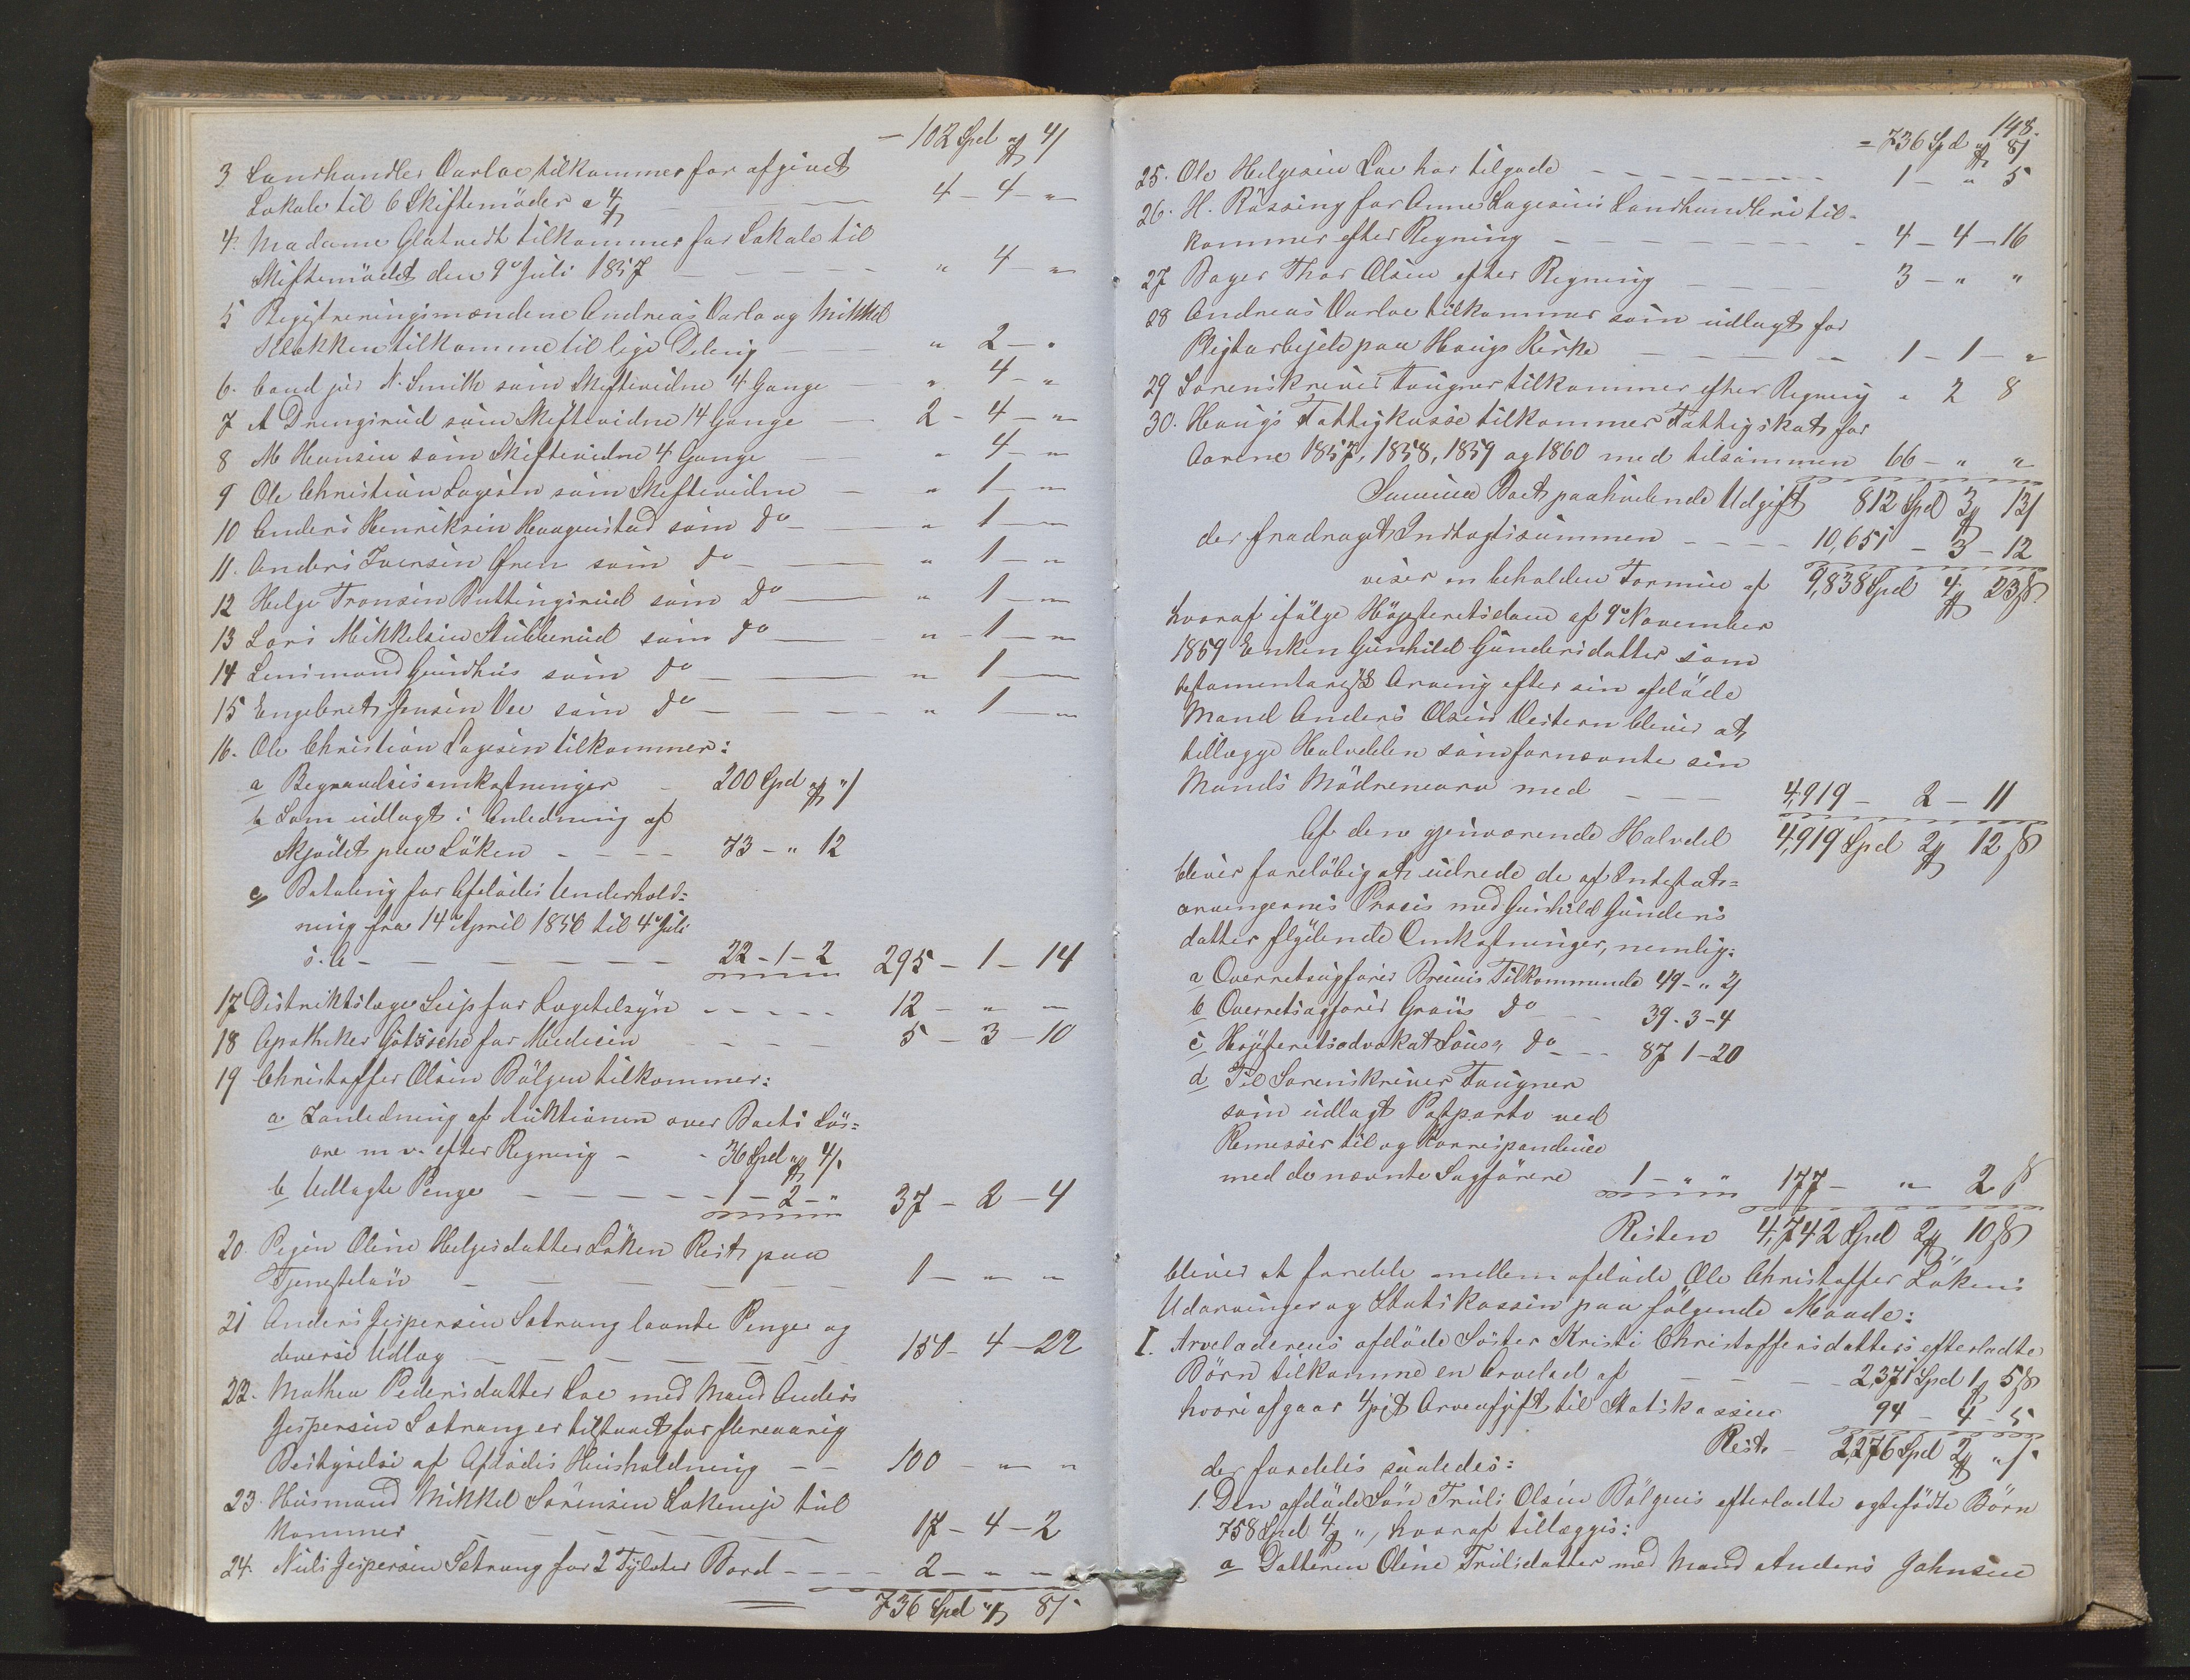 – 102 Spd " ℳ 4/
3 Landhandler Varloe tilkommer for afgivet
Lokale til 6 Skiftemöder a 4 ℳ — 4 – 4 – "
4. Madame Glatvedt tilkommer for Lokale til
Skiftemödet den 9de Juli 1857 — " 4 – "
5 Registreringsmændene Andreas Varlo og Mikkel
Klokken tilkomme til lige Deling — " 2 – "
6. Cand jur N. Smith som Skiftevidne 4 Gange — " 4 – "
7 A Drengsrud som Skiftevidne 14 Gange — 2 – 4 – "
8 M Hansen som Skiftevidne 4 Gange — " 4 – "
9 Ole Christian Lagesen som Skiftevidne — " 1 – "
10 Anders Henriksen Haagenstad som Do — " 1 – "
11. Anders Iversen Gren som Do — " 1 – "
12 Helge Tronsen Buttingsrud som Do — " 1 – "
13 Lars Mikkelsen Stubberud som Do — " 1 – "
14 Lensmand Gundhus som Do — " 1 – "
15 Engebret Jensen Vee som Do — " 1 – "
16. Ole Christian Lagesen tilkommer:
a Begravelsesomkostninger – 200 Spd " ℳ "/
b Som udlagt i Anledning af
Skjödet paa Löken – – – – 73 – " 12
c Betaling for Afdödes Underhold=
ning fra 14de April 1856 til 4de Juli
s. A – – – – – – 22 – 1 – 2 295 – 1 – 14
17 Distriktslæge Leip for Lægetilsyn – – – – – 12 – " –
18 Apotheker Götzsche for Medicin – – – 5 – 3 – 10
19 Christoffer Olsen Bölgen tilkommer:
a I anledning af Auktionen over Boets Lös=
öre m v. efter Regning – - 36 Spd " ℳ 4/.
b Udlagte Penge – – – – – 1 – 2 – " 37 – 2 – 4
20. Pigen Oline Helgesdatter Löken Rest paa
Tjenestelön – – – – – 1 – " – "
21 Anders Jespersen Sætrang laante Penge og
diverse Udlæg – – – – – 150 – 4 – 22
22. Mathea Pedersdatter Loe med Mand Anders
Jespersen Sætrang er tilstaaet for fleraarig
Bestyrelse af Afdödes Huusholdning – – 100 – " – "
23. Husmand Mikkel Sörensen Lökeneje til
kommer – – – – – 17 – 4 – 2
24. Niels Jespersen Sætrang for 2 Tylvter Bord – – – – 2 – " – "
736 Spd " ℳ 8/.
148.
= 736 Spd " ℳ 8/
25. Ole Helgesen Loe har tilgode – – – – – – – – 1 – " 5
26. H. Rössing for Anne Lagesens Landhandleri til=
kommer efter Regning – – – – – – – – 4 – 4 – 16
27 Bager Thor Olsen efter Regning – – – – 3 – " "
28 Andreas Varloe tilkommer som udlagt for
Pligtarbejde paa Hougs Kirke – – – – 1 – 1 – "
29 Sorenskriver Tougner tilkommer efter Regning " 2 8
30. Hougs Fattigkasse tilkommer Fattigskat for
Aarene 1857, 1858, 1859 og 1860 med tilsammen 66 – " "
Summa Boets paahvilende Udgift 812 Spd 3 ℳ 13/
der fradraget Indtægtssummen – – – – 10,651 – 3 – 12
viser en beholden Formue af 9,838 Spd 4 ℳ 23 ß
hvoraf ifölge Höjesteretsdom af 9de November
1859 Enken Gunhild Gundersdatter som
testamentarisk Arving efter sin afdöde
Mand Anders Olsen Vestern bliver at
tillægge Halvdelen som fornævnte sin
Mands Mödrenearv med – – – 4,919 – 2 – 11
Af den gjenværende Halvdel 4,919 Spd 2 ℳ 12 ß
bliver forelöbig at udrede de af Intestat=
arvingernes Proces med Gunhild Gunders
datter flydende Omkostninger, nemlig:
a Overretssagförer Bruuns Tilkommende 49 – " 2/
b Overretssagförer Graus Do – – – 39 . 3 – 4
c Höjesteretsadvokat Lous's Do – – – 87 1 – 20
d Til Sorenskriver Tougner
som udlagt Postporto ved
Remesser til og Korrespondence
med de nævnte Sagförere 1 – " " 177 – " 2 ß
Resten 4,742 Spd 2 ℳ 10 ß
bliver at fordele mellem afdöde Ole Christoffer Lökens
Udarvinger og Statskassen paa fölgende Maade:
I. Arveladerens afdöde Söster Kristi Christoffersdatters efterladte
Börn tilkomme en Arvelod af – – – 2,371 Spd 1 ℳ 5 ß
hvori afgaar 4 pCt Arveafgift til Statskassen 94 – 4 – 5
Rest – 2,276 Spd 2 ℳ "/.
der fordeles saaledes:
1. Den afdöde Sön Truls Olsen Bölgens efterladte ægtefödte Börn
758 Spd 4 ℳ ", hvoraf tillægges:
a Datteren Oline Trulsdatter med Mand Anders Johnsen